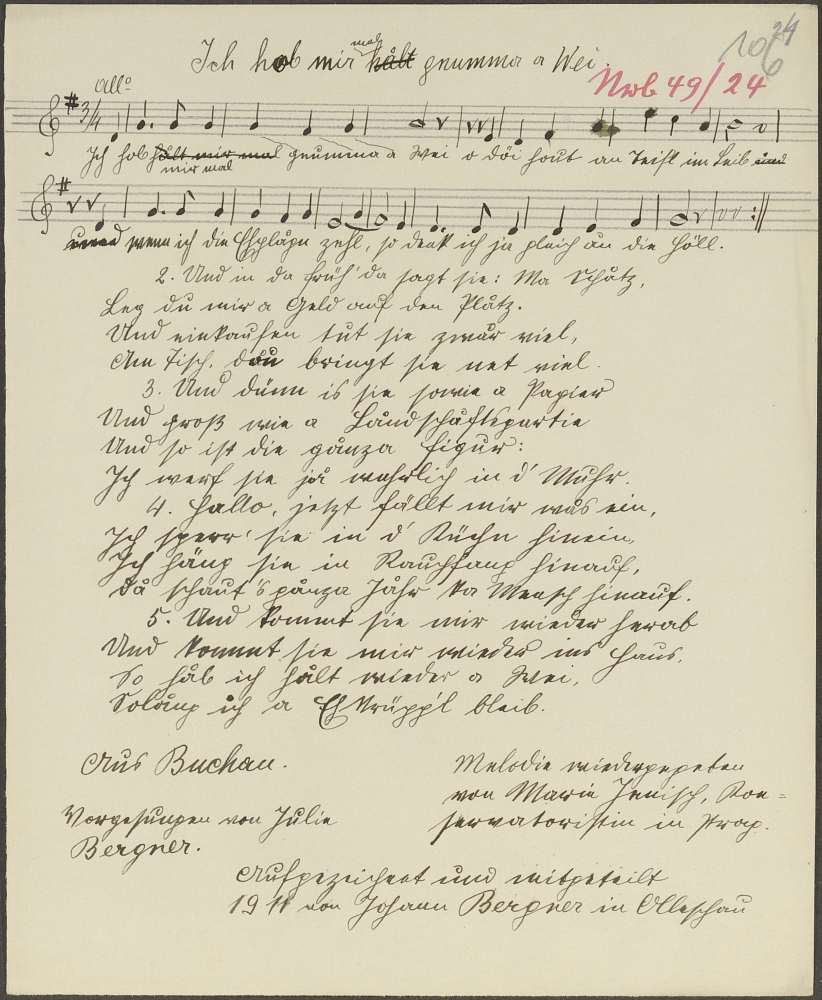 24
106
Ich hob mir mal hålt gnumma a Wei.
Nrb 49/24
Allo
3/4
Ich hob hålt mir mal gnumma a Wei o döi hout an Teifl im Leib und
mir mal
und wenn ich die Ehplågn zehl, so denk ich ja gleich ån die Höll.
2. Und in da früh' da sagt sie: Ma Schåtz,
Leg du mir a Geld auf den Plåtz.
Und einkaufen tut sie zwår viel,
Am Tisch, dåu bringt sie net viel.
3. Und dünn is sie sowie a Papier
Und groß wie a Låndschåftspartie
Und so ist die gånza Figur:
Ich werf sie jå wahrlich in d' Muhr.
4. Hallo, jetzt fällt mir wås ein,
Ich sperr' sie in d' Küchn hinein,
Ich häng sie in Rauchfang hinauf,
Då schaut 's gånza Jåhr ka Mensch hinauf.
5. Und kommt sie mir wieder herab
Und kommt sie mir wieder ins Haus,
So håb ich hålt wieder a Wei,
Solång ich a Ehkrüpp'l bleib.
Aus Buchau.
Melodie wiedergegeben
von Marie Jenisch, Kon=
servatoristin in Prag.
Vorgesungen von Julie
Bergner.
Aufgezeichnet und mitgeteilt
1911 von Johann Bergner in Olleschau